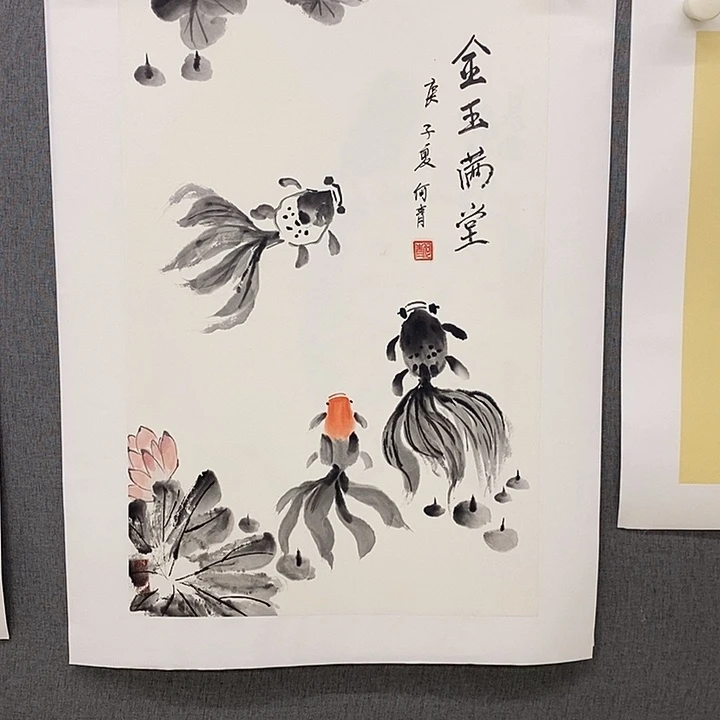 金玉满堂
庚子夏何青